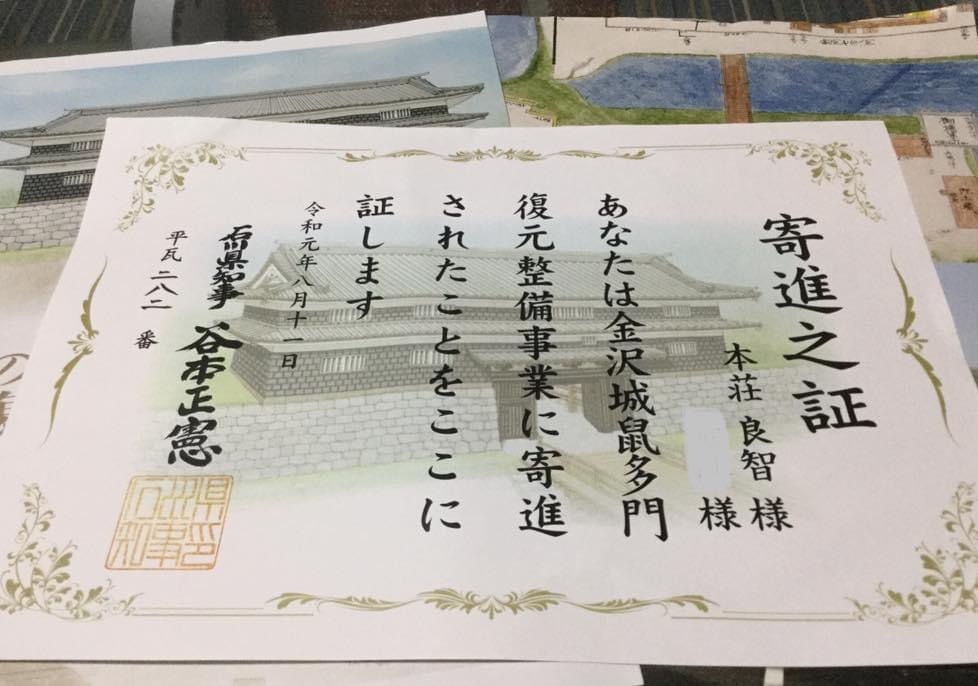 寄進之証
本荘 良智 様
様
あなたは金沢城鼠多門
復元整備事業に寄進
されたことをここに
証します
令和元年八月十一日
石川県知事 谷本正憲
平瓦 二八二 番
石川県知事印